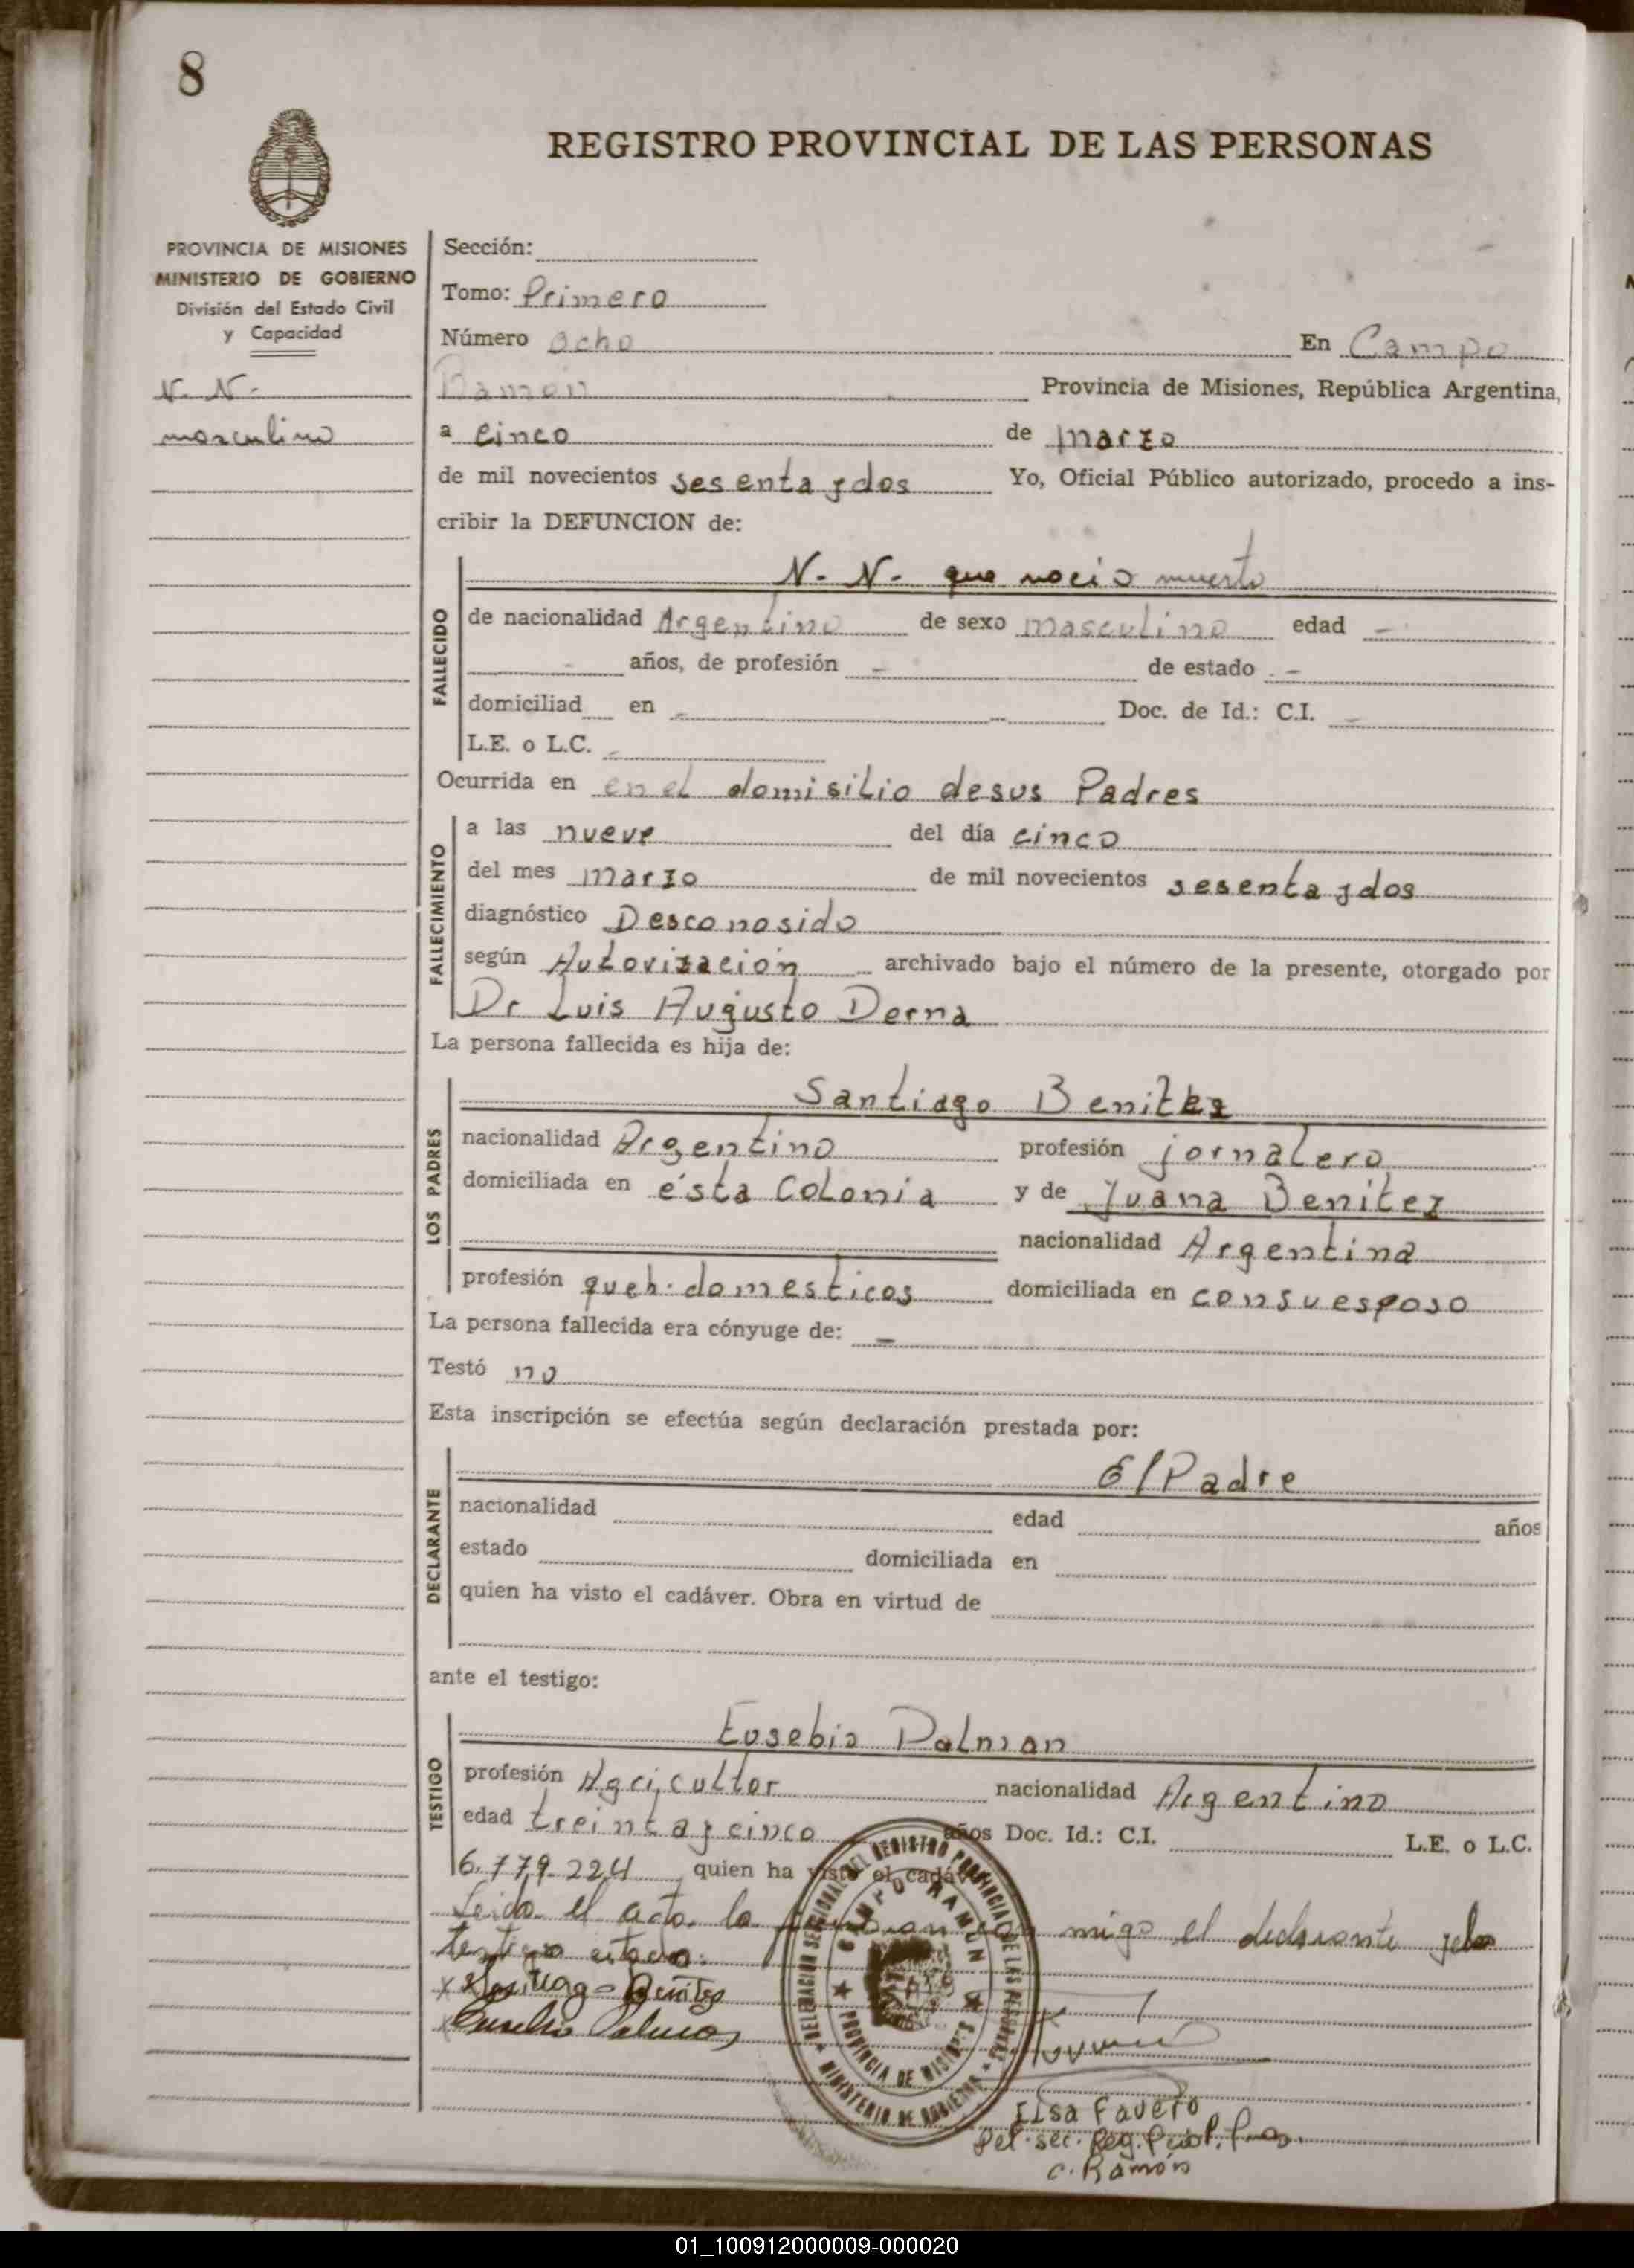 8
REGISTRO PROVINCIAL DE LAS PERSONAS
PROVINCIA DE MISIONES
MINISTERIO DE GOBIERNO
División del Estado Civil
y Capacidad
N. N.
masculino
Sección:
Tomo: Primero
Número ocho En Campo
Ramón Provincia de Misiones, República Argentina,
a Cinco de Marzo
de mil novecientos sesenta y dos Yo, Oficial Público autorizado, procedo a ins-
cribir la DEFUNCION de:
N. N. que nacio muerto
FALLECIDO
de nacionalidad Argentino de sexo masculino edad -
- años, de profesión - de estado -
domiciliad en - Doc. de Id.: C.I. -
L.E. o L.C. -
Ocurrida en en el domisilio desus Padres
FALLECIMIENTO
a las nueve del día cinco
del mes marzo de mil novecientos sesenta y dos
diagnóstico Desconosido
según Autorización archivado bajo el número de la presente, otorgado por
Dr Luis Augusto Derna
La persona fallecida es hija de:
LOS PADRES
Santiago Benitez
nacionalidad Argentino profesión jornalero
domiciliada en ésta Colonia y de Juana Benitez
nacionalidad Argentina
profesión queh. domesticos domiciliada en consuesposo
La persona fallecida era cónyuge de: -
Testó no
Esta inscripción se efectúa según declaración prestada por:
DECLARANTE
El Padre
nacionalidad edad años
estado domiciliada en
quien ha visto el cadáver. Obra en virtud de
ante el testigo:
TESTIGO
Eusebio Dalman
profesión Agricultor nacionalidad Argentino
edad treinta y cinco años Doc. Id.: C.I. L.E. o L.C.
6.779.224 quien ha visto el cadáver
Leida el acta la migo el declarante y el
testigo
DELEGACION SECCIONAL DEL REGISTRO PROVINCIAL DE LAS PERSONAS
CAMPO RAMON
PROVINCIA DE MISIONES
MINISTERIO DE GOBIERNO
x Santiago Benitez
x Eusebio
Elsa Favero
Del. sec. Reg. Pcial. P.
C. Ramón
01_100912000009-000020